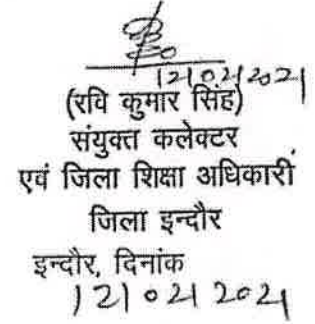 12/02/2021
(रवि कुमार सिंह)
संयुक्त कलेक्टर
एवं जिला शिक्षा अधिकारी
जिला इन्दौर
इन्दौर, दिनांक
12/02/2021